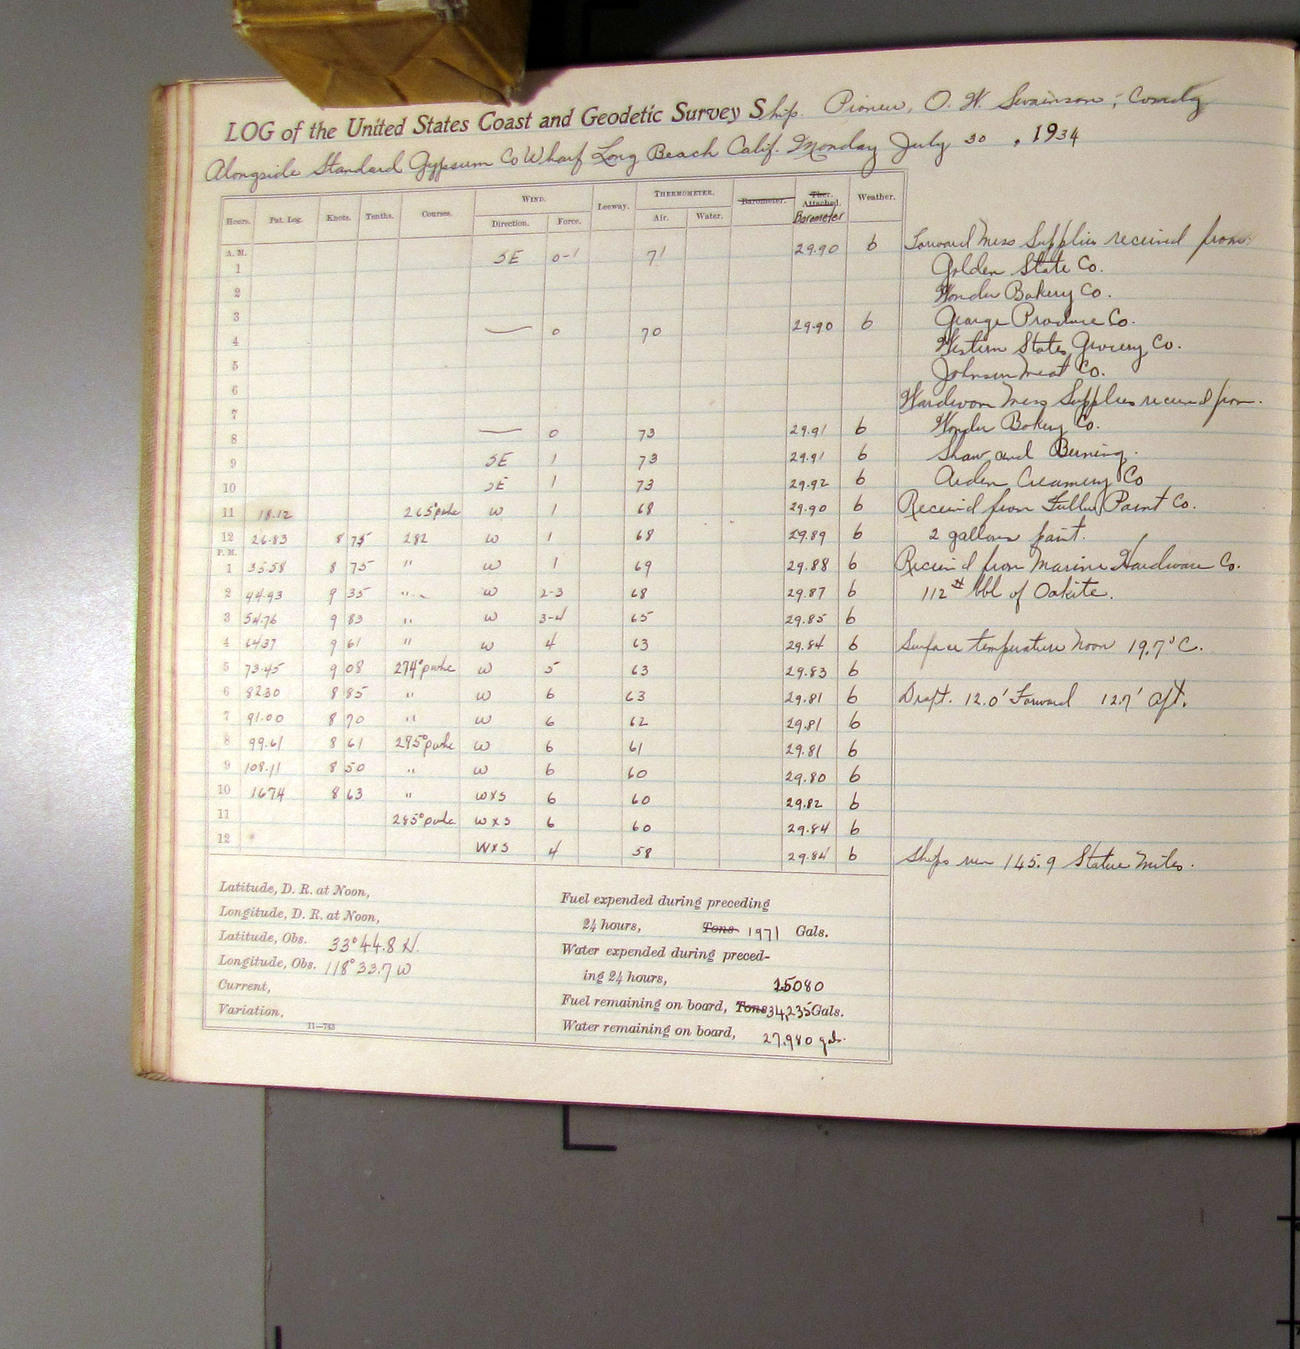 LOG of the United States Coast and Geodetic Survey Ship Pioneer, O. W. Swainson, Comdg
Alongside Standard Gypsum Co Wharf Long Beach Calif. Monday July 30, 1934
Hours. Pat. Log. Knots. Tenths. Courses. Wind. Direction. Force. Leeway. Thermometer. Air. Water. Barometer. Ther. Attached. Barometer Weather.
A. M.
1 SE 0-1 71 29.90 b
2
3
4 — 0 70 29.90 b
5
6
7
8 — 0 73 29.91 b
9 SE 1 73 29.91 b
10 SE 1 73 29.92 b
11 18.12 265° W 1 68 29.90 b
12 26.83 8 75 282 W 1 68 29.89 b
P. M.
1 35.58 8 75 " W 1 69 29.88 b
2 44.93 9 35 " W 2-3 68 29.87 b
3 54.76 9 83 " W 3-4 65 29.85 b
4 6437 9 61 " W 4 63 29.84 b
5 73.45 9 08 274° W 5 63 29.83 b
6 8230 8 85 " W 6 63 29.81 b
7 91.00 8 70 " W 6 62 29.81 b
8 99.61 8 61 285° W 6 61 29.81 b
9 108.11 8 50 " W 6 60 29.80 b
10 1674 8 63 " WXS 6 60 29.82 b
11 285° WXS 6 60 29.84 b
12 WXS 4 58 29.84 b
Forward Mess Supplies received from
Golden State Co.
Wonder Bakery Co.
George Produce Co.
Western States Grocery Co.
Johnson Meat Co.
Wardroom Mess Supplies received from.
Wonder Bakery Co.
Shaw and
Arden Creamery Co
Received from Fuller Paint Co.
2 gallons paint.
Received from Marine Hardware Co.
112# bbl of Oakite.
Surface temperature Noon 19.7°C.
Draft. 12.0' Forward 12.7' aft.
Ships run 145.9 Statue Miles.
Latitude, D. R. at Noon,
Longitude, D. R. at Noon,
Latitude, Obs. 33° 44.8 N.
Longitude, Obs. 118° 33.7 W
Current,
Variation,
11—783
Fuel expended during preceding
24 hours, Tons 1971 Gals.
Water expended during preced-
ing 24 hours, 25080
Fuel remaining on board, Tons 34,235 Gals.
Water remaining on board, 27,980 gals.